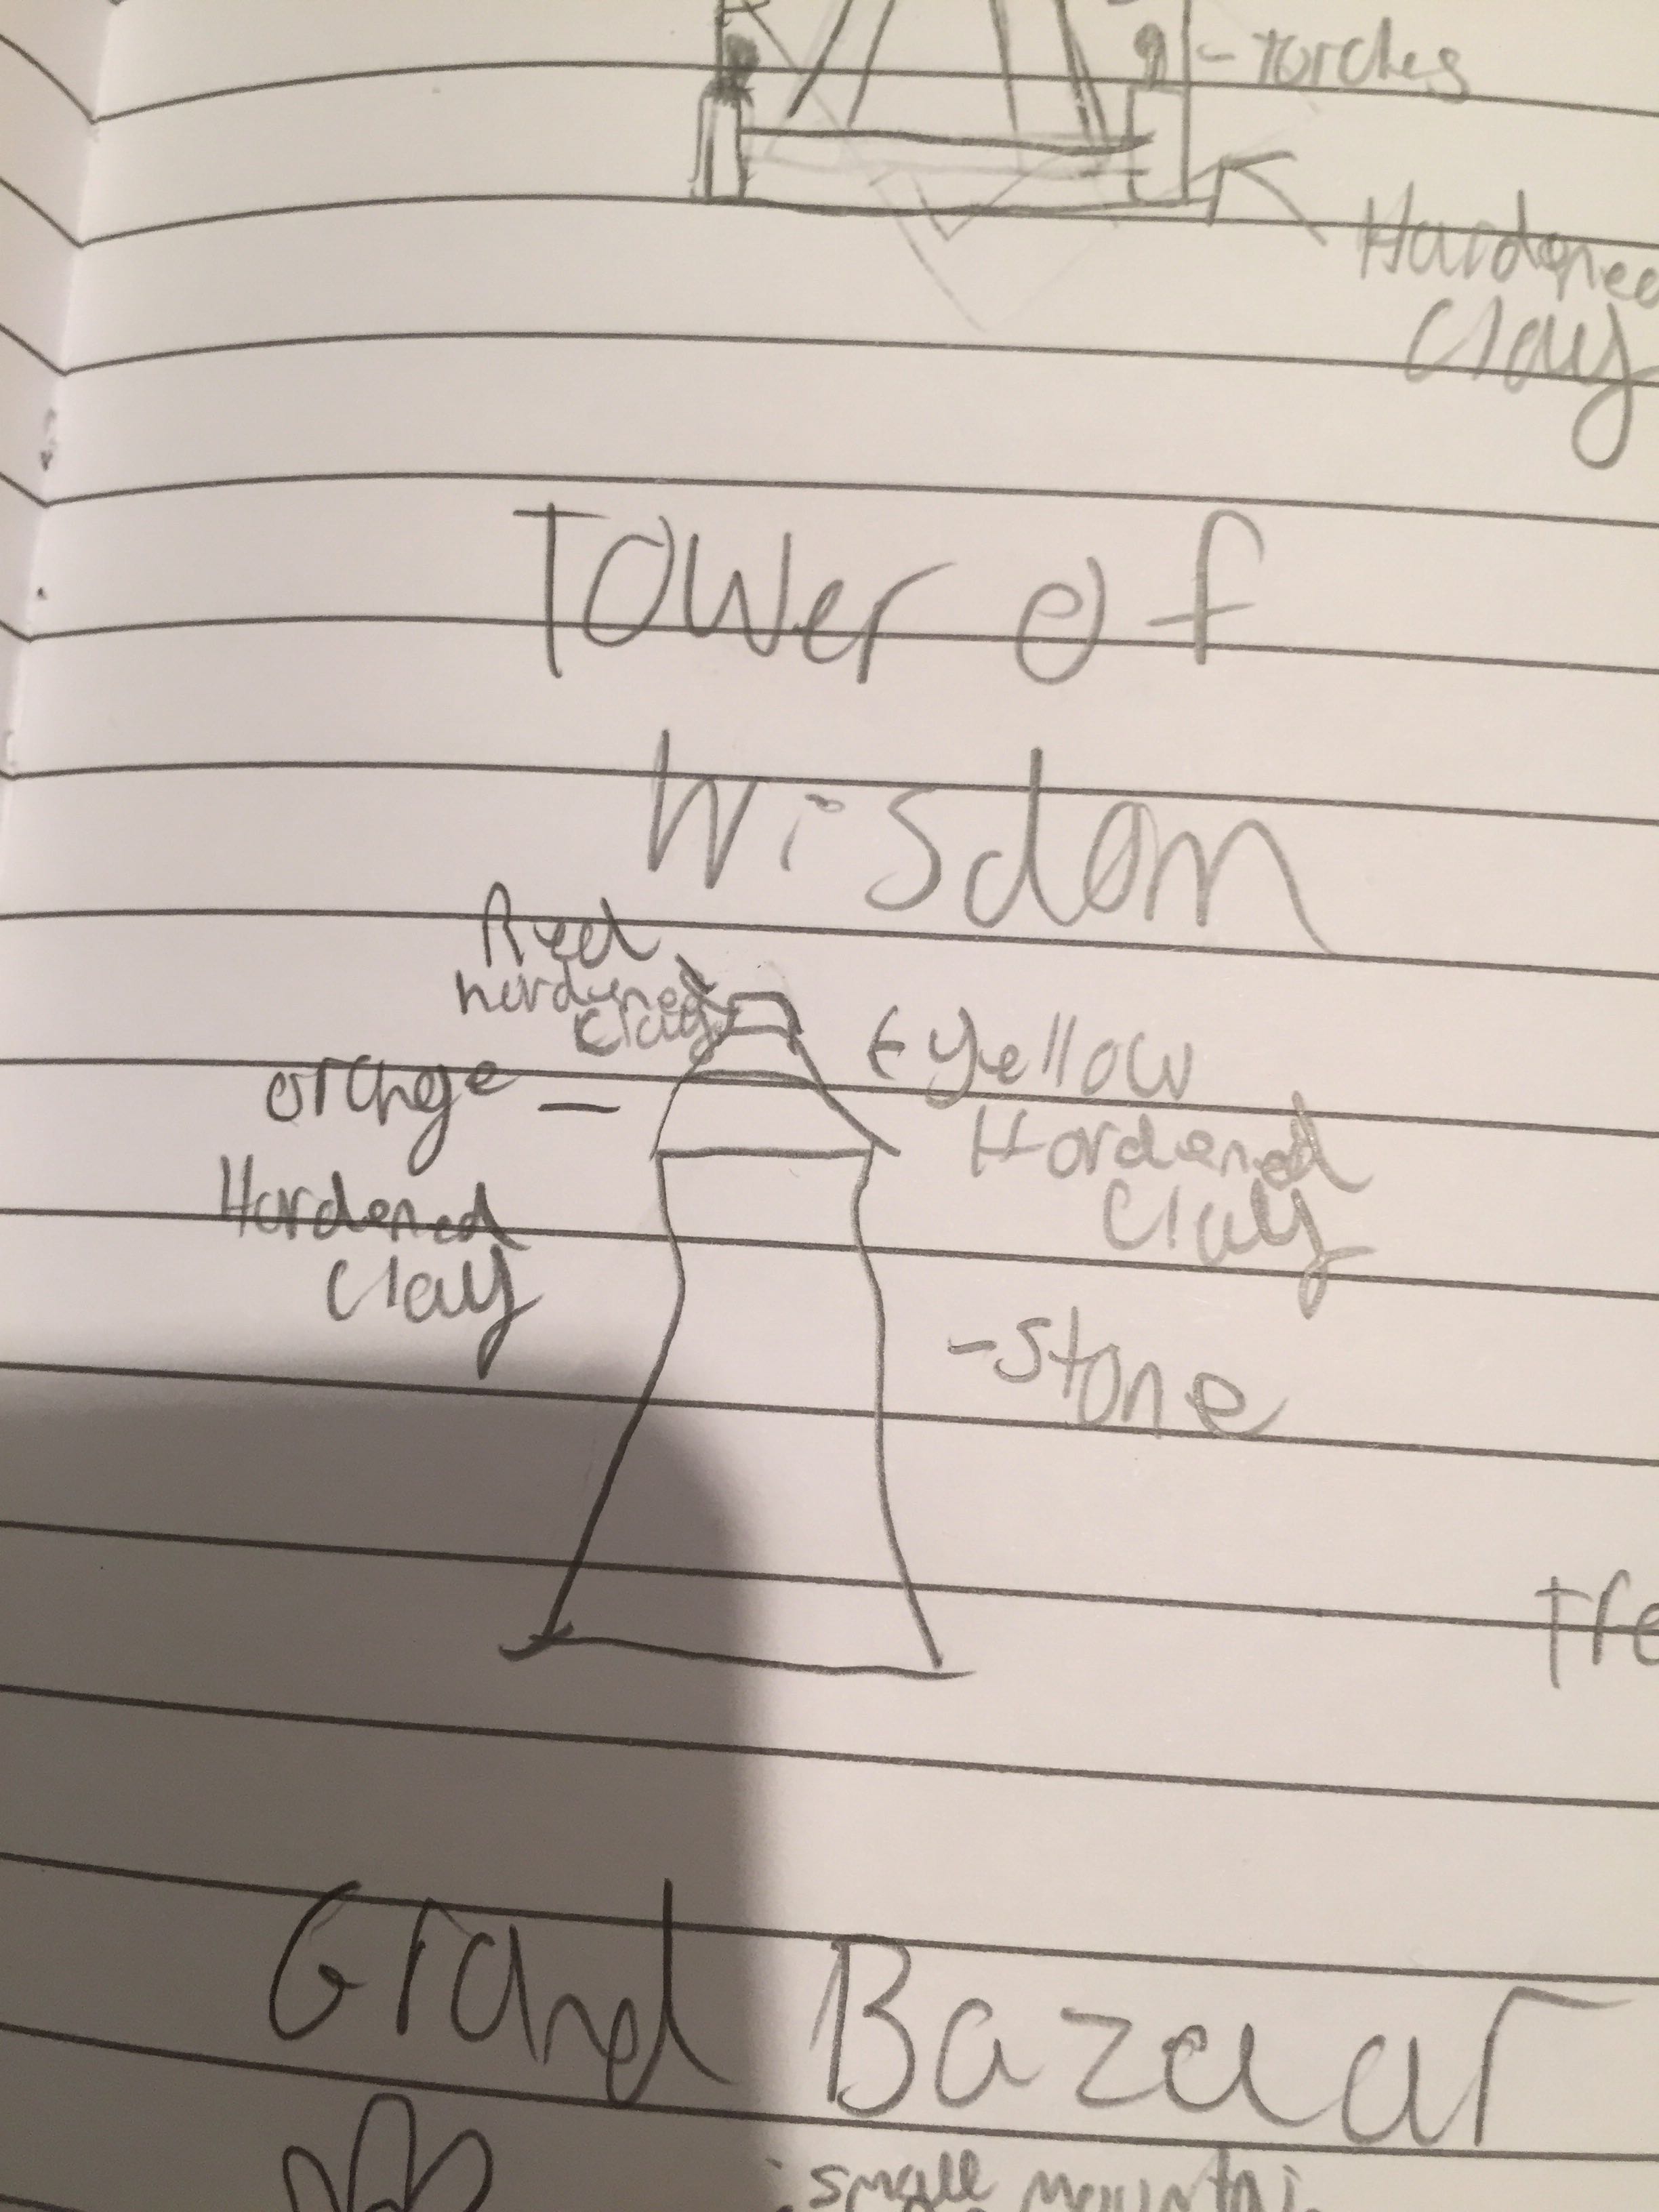 - torches
Hardened
Clay
Tower of
Wisdom
Red
hardened
clay
← yellow
Hardened
Clay
orange -
Hardened
Clay
- stone
Grand Bazaar
small